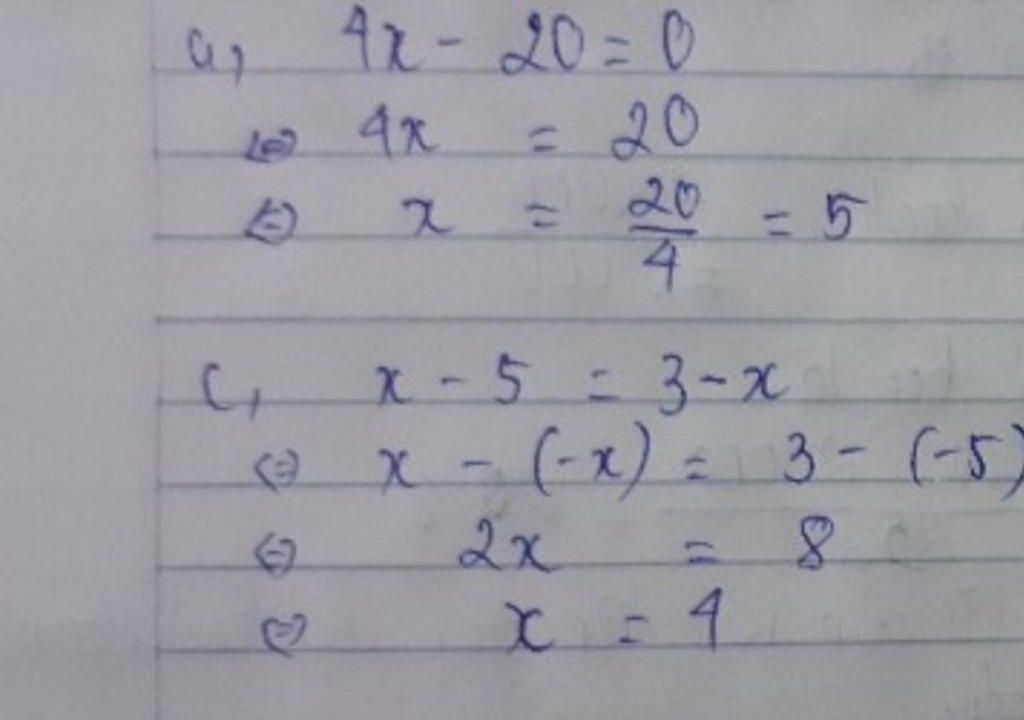 a, 4x - 20 = 0
⇔ 4x = 20
⇔ x = 20/4 = 5
c, x - 5 = 3 - x
⇔ x - (-x) = 3 - (-5)
⇔ 2x = 8
⇔ x = 4